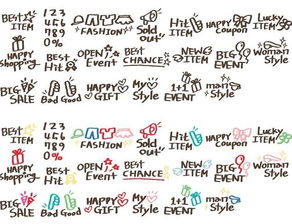 BEST ITEM
1 2 3
4 5 6
7 8 9
0 %
FASHION
Sold Out!
Hit ITEM
HAPPY Coupon
Lucky ITEM
HAPPY Shopping
Best
OPEN Event
BEST CHANCE
NEW ITEM
BIG EVENT
Woman Style
BIG SALE
Bad Good
HAPPY GIFT
My Style
1+1 EVENT
man Style
BEST ITEM
1 2 3
4 5 6
7 8 9
0 %
FASHION
Sold Out!
Hit ITEM
HAPPY Coupon
Lucky ITEM
HAPPY Shopping
Best
OPEN Event
BEST CHANCE
NEW ITEM
BIG EVENT
Woman Style
BIG SALE
Bad Good
HAPPY GIFT
My Style
1+1 EVENT
man Style